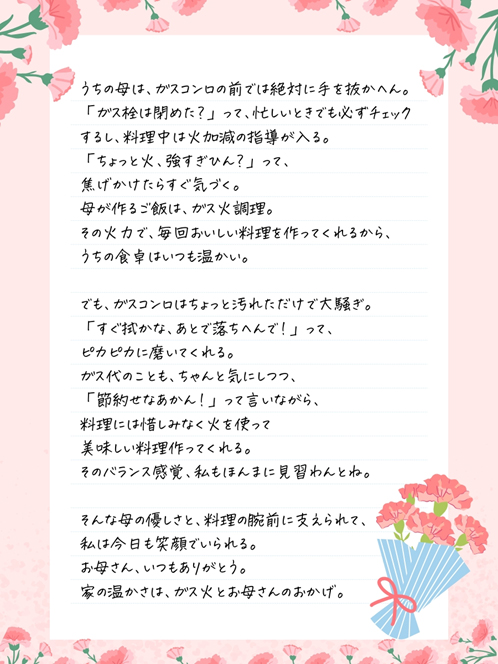 うちの母は、ガスコンロの前では絶対に手を抜かへん。
「ガス栓は閉めた？」って、忙しいときでも必ずチェック
するし、料理中は火加減の指導が入る。
「ちょっと火、強すぎひん？」って、
焦げかけたらすぐ気づく。
母が作るご飯は、ガス火調理。
その火力で、毎回おいしい料理を作ってくれるから、
うちの食卓はいつも温かい。
でも、ガスコンロはちょっと汚れただけで大騒ぎ。
「すぐ拭かな、あとで落ちへんで！」って、
ピカピカに磨いてくれる。
ガス代のことも、ちゃんと気にしつつ、
「節約せなあかん！」って言いながら、
料理には惜しみなく火を使って
美味しい料理作ってくれる。
そのバランス感覚、私もほんまに見習わんとね。
そんな母の優しさと、料理の腕前に支えられて、
私は今日も笑顔でいられる。
お母さん、いつもありがとう。
家の温かさは、ガス火とお母さんのおかげ。